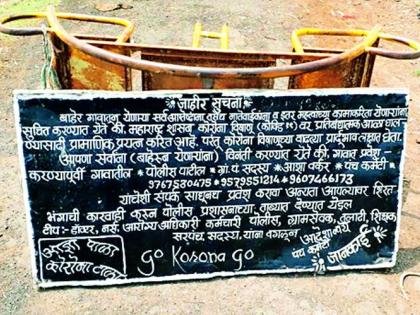 जाहीर सुचना
बाहेर गावातून येणाऱ्या सर्व आप्तेष्टांना तसेच नातेवाईकांना व इतर महत्वाच्या कामाकरिता येणाऱ्यांना
सुचित करण्यात येते की, महाराष्ट्र शासन कोरोना विषाणू (कोविड १९) वर प्रतिबंधात्मक आळा घाल-
ण्यासाठी प्रामाणिक प्रयत्न करित आहे. परंतु कोरोना विषाणूच्या वाढत्या प्रादुर्भाव लक्षात घेता.
आपणा सर्वांना (बाहेरून येणाऱ्यांना) विनंती करण्यात येते की, गावात प्रवेश -
करण्यापूर्वी गावातील * पोलीस पाटील * ग्रा.पं. सदस्य * आशा वर्कर * पंच कमेटी
9767580475 * 9579551214 * 9607466173
यांचेशी संपर्क साधूनच प्रवेश करावा अन्यता आपल्यावर शिस्त-
भंगाची कारवाही करून पोलीस प्रशासनाच्या ताब्यात देण्यात येइल
टीप:- डॉक्टर, नर्स, आरोग्य अधिकारी कर्मचारी पोलीस, ग्रामसेवक, तलाठी, शिक्षक
सरपंच, सदस्य, यांना वगळून
आदेशान्वये
पंच कमेटी
जानकाई
पाळा
कोरोना टाळा
go Korona go